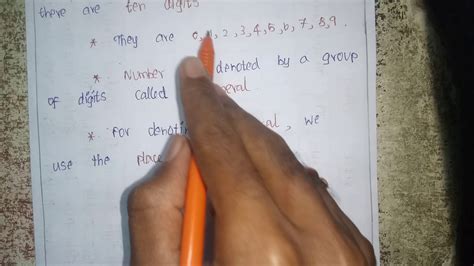 there are ten digits
* They are 0,1,2,3,4,5,6,7,8,9.
* Number denoted by a group
of digits called
* For we
use the place